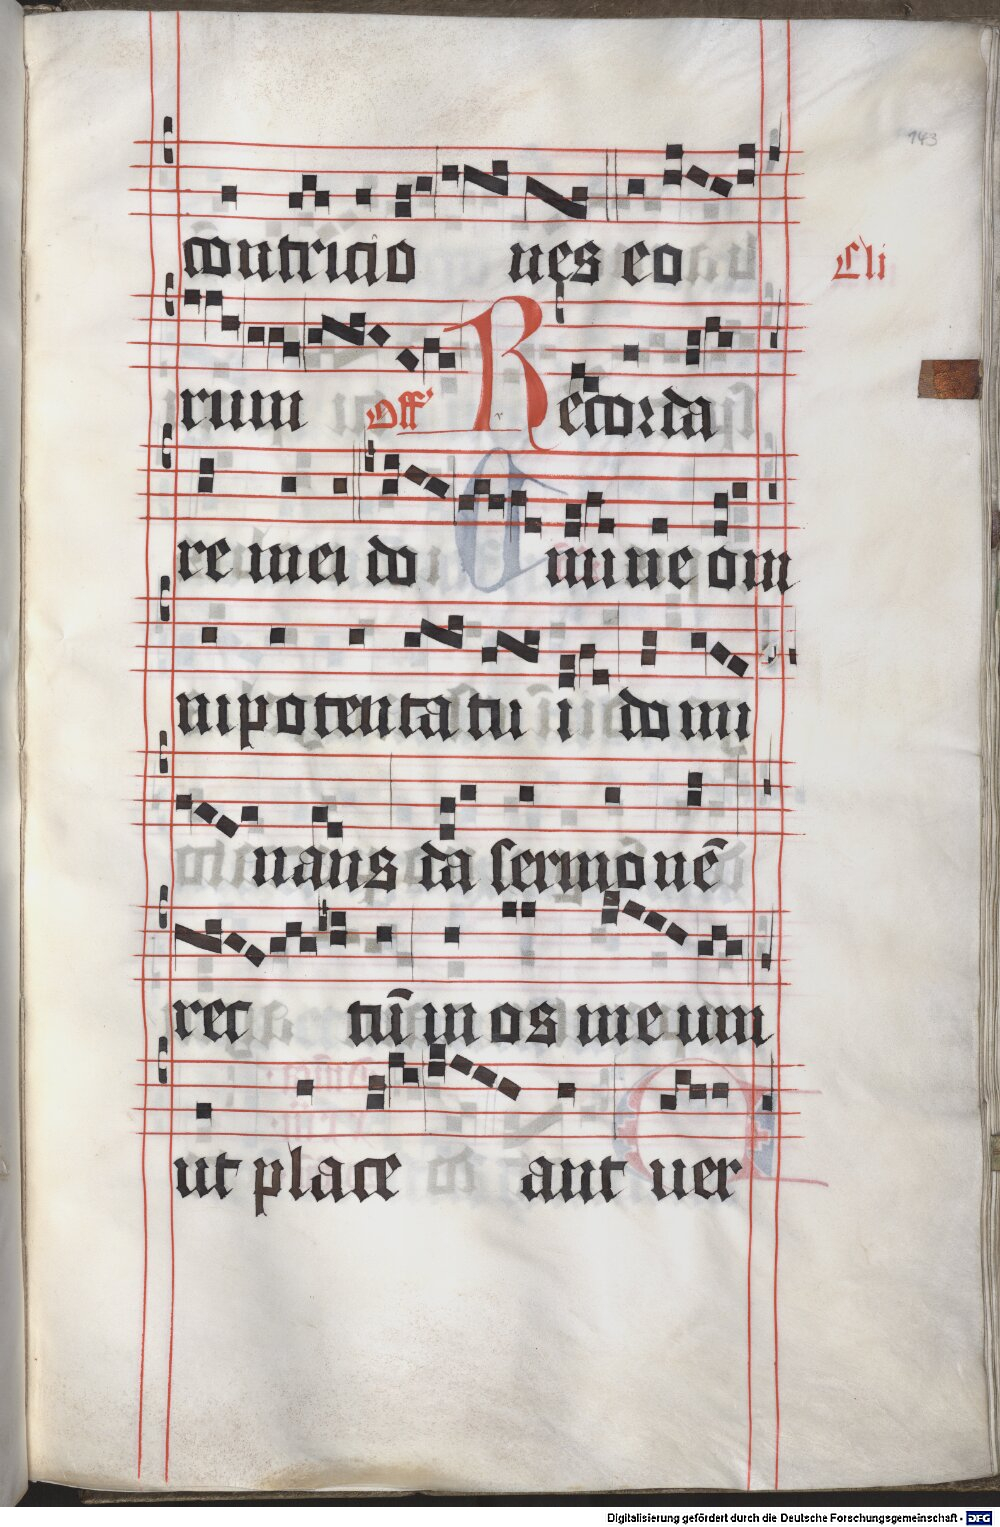 143
contricio nes eo
Cli
rum Off' Recorda
re mei do mine om
nipotentatu i domi
nans da sermonē
rec tū in os meum
ut place ant uer
Digitalisierung gefördert durch die Deutsche Forschungsgemeinschaft - DFG